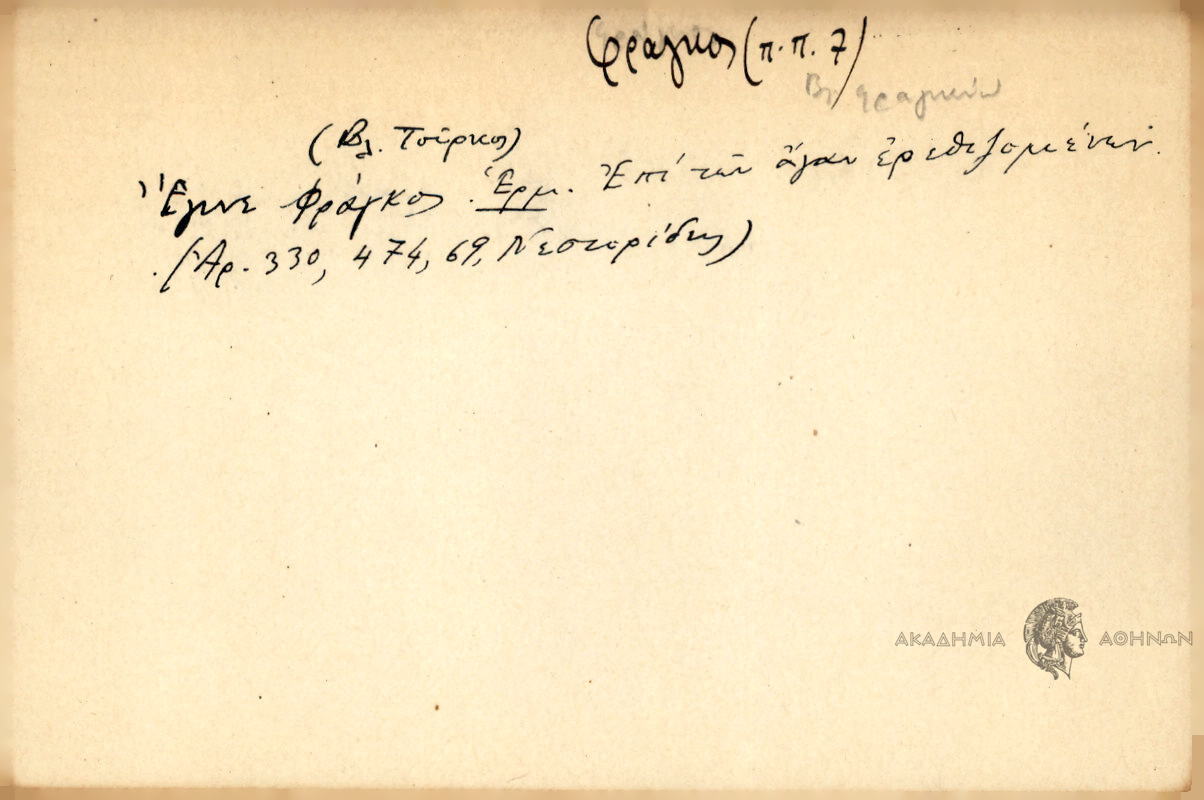 Φράγκος (π.π. 7)
Βλ. φραγκεύω
(Βλ. Τοῦρκος)
Ἔγινε Φράγκος. Ἑρμ. Ἐπί τῶν ἄγαν ἐρεθιζομένων.
(Ἀρ. 330, 474, 69, Νεστορίδης)
ΑΚΑΔΗΜΙΑ ΑΘΗΝΩΝ